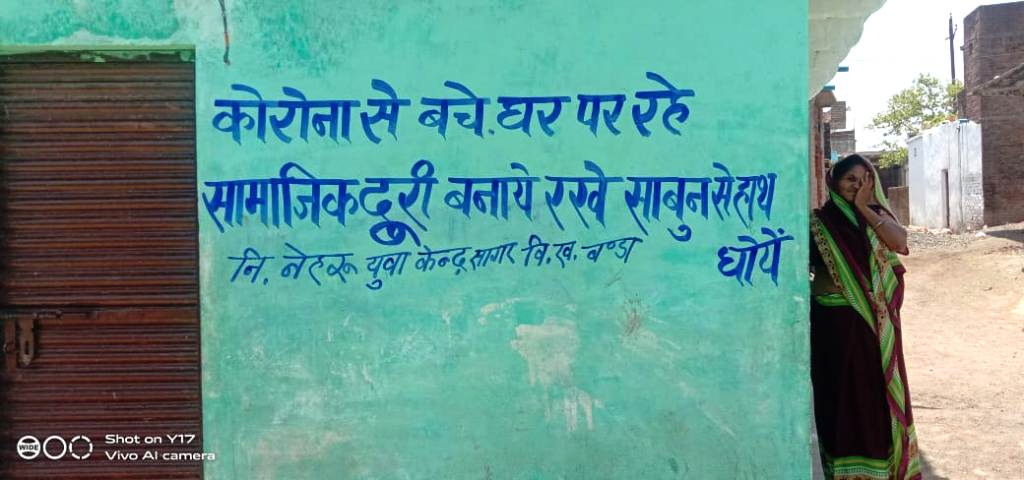 कोरोना से बचे. घर पर रहे
सामाजिक दूरी बनाये रखे साबुन से हाथ
धोयें
नि. नेहरू युवा केन्द्र सागर वि.ख. बण्डा
WIDE
Shot on Y17
Vivo AI camera